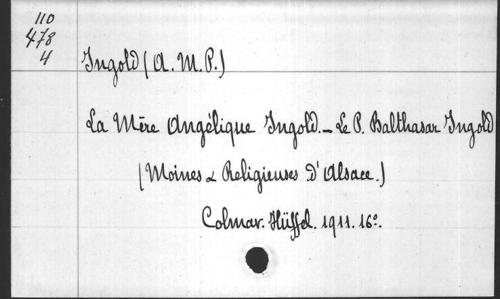 110
478
4
Ingold (A. M. P.)
La Mère Angélique Ingold. - Le P. Balthasar Ingold
(Moines & Religieuses d'Alsace.)
Colmar. Hüffel. 1911. 16º.